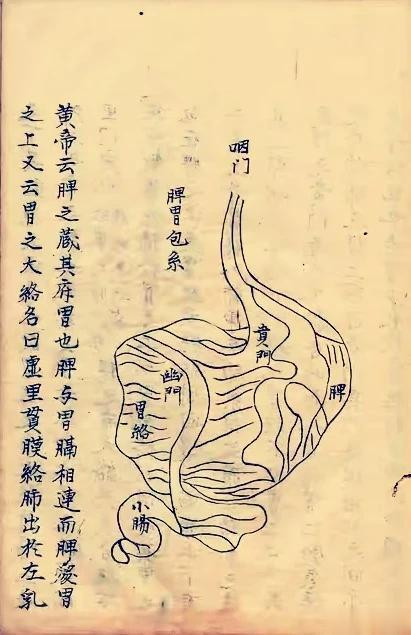 咽门
脾胃包系
賁門
脾
幽門
胃絡
小腸
黄帝云脾之蔵其府胃也脾与胃膈相連而脾處胃
之上又云胃之大絡名曰虚里貫膜絡肺出扵左乳